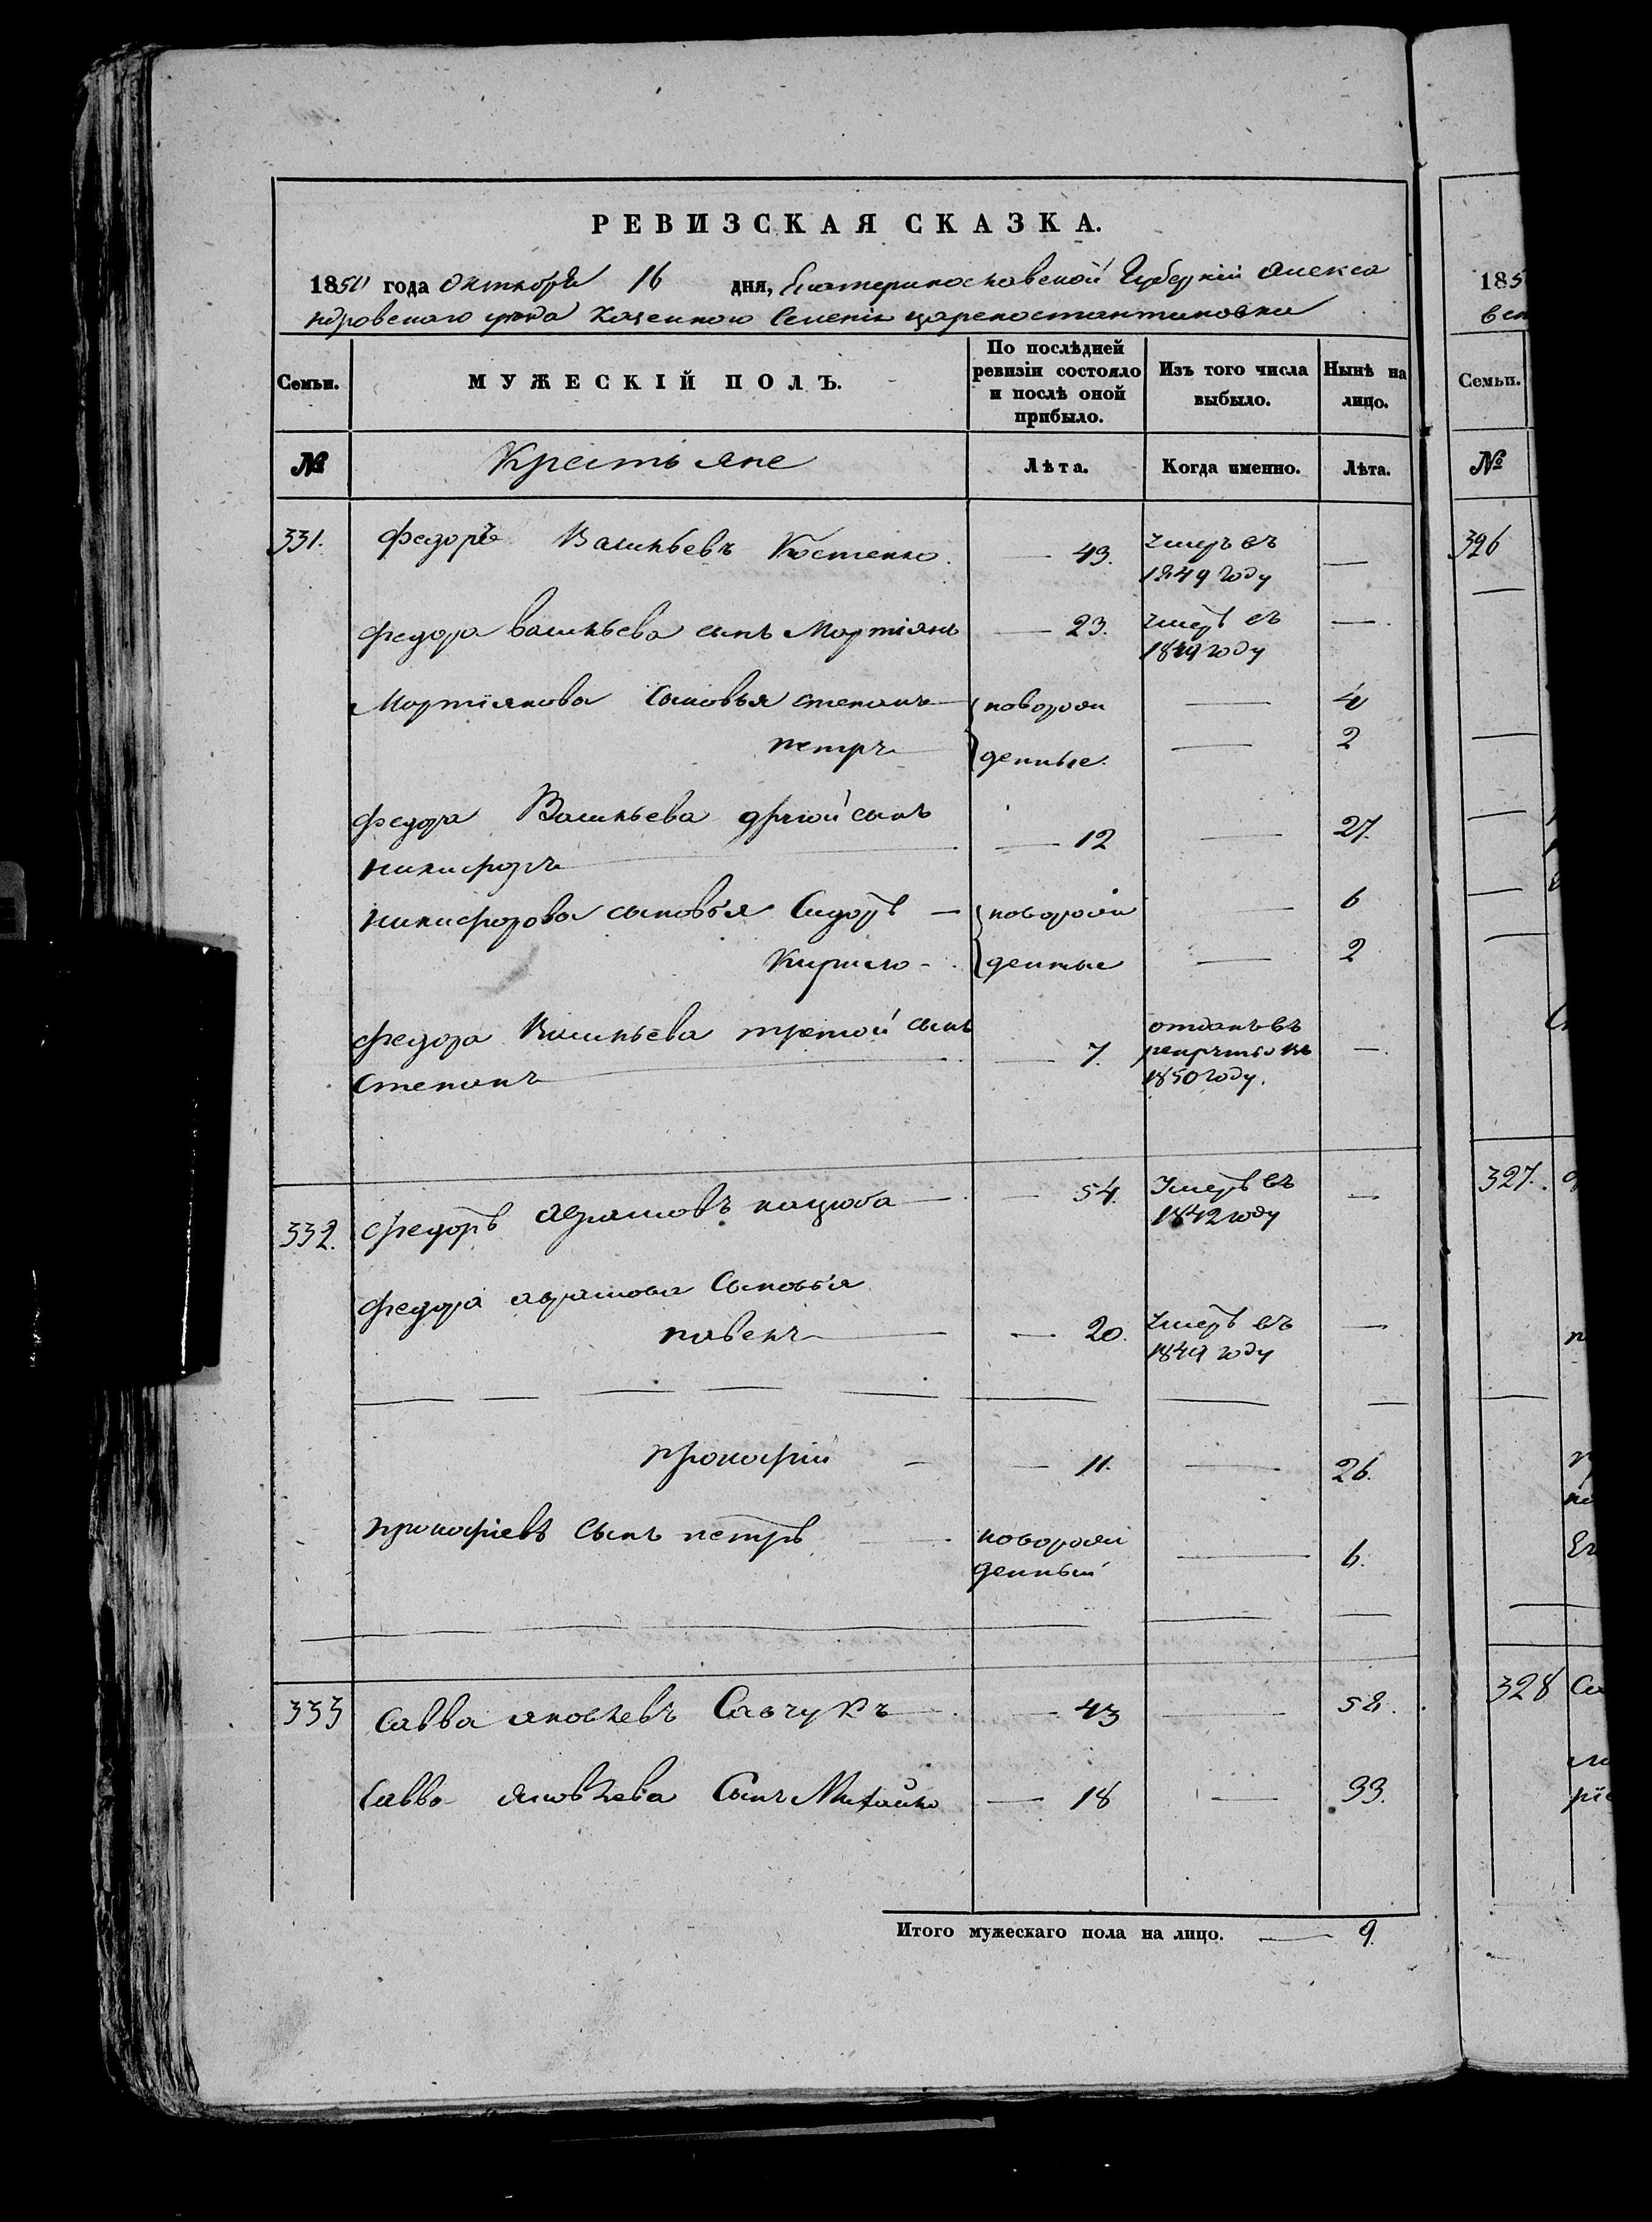 РЕВИЗСКАЯ СКАЗКА.
1850 года октября 16 дня, Екатеринославской Губерніи Алекса
ндровскаго уѣзда Казенного Селенія царекостантиновки
Семьи.
МУЖЕСКІЙ ПОЛЪ.
По послѣдней ревизіи состояло и послѣ оной прибыло.
Изъ того числа выбыло.
Нынѣ на лицо.
№ Крестьяне Лѣта. Когда именно. Лѣта.
331. Федоръ Васильевъ Костенко. — 43. умеръ въ 1849 году —
Федора Васильева сынъ Мартіянъ — 23. умеръ въ 1849 году —
Мартіянова Сыновья степанъ — новорож — 4
петръ — денные. — 2
Федора Васильева другой сынъ
никифоръ — 12 — 27.
никифорова сыновья Сидоръ — новорож — 6
Кирило - денные — 2
Федора Васильева третой сынъ
Степанъ — 7. отданъ въ рекруты въ 1850 году. —
332. Федоръ Аврамовъ кацюба — 54. Умеръ въ 1842 году —
Федора аврамова Сыновья
павелъ — 20. умеръ въ 1849 году —
Прокофій — 11. — 26.
прокофіевъ Сынъ петръ — новорож
денный — 6.
333 Савва яковлевъ Савчукъ — 43 — 58.
Савва яковлева Сынъ Михайло — 18 — 33.
Итого мужескаго пола на лицо. — 9.
185
Семьи.
№
326
327.
328 Са